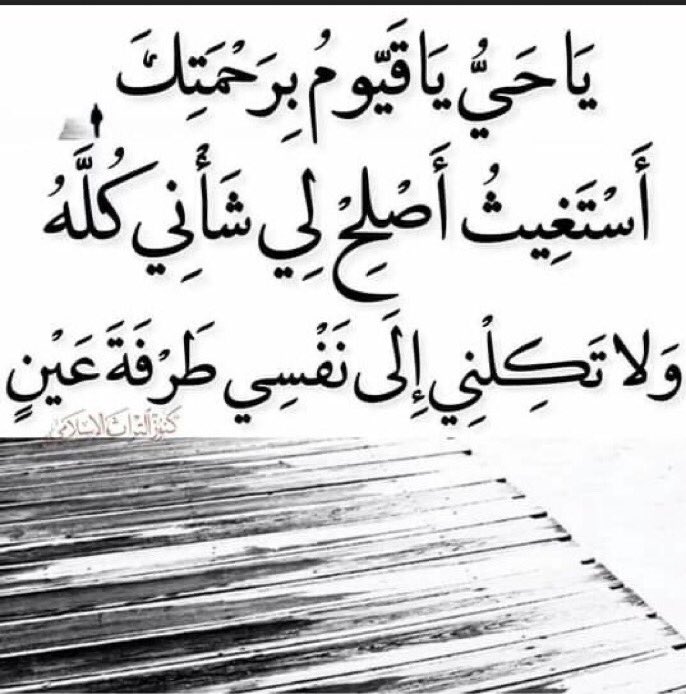 يَا حَيُّ يَا قَيّومُ بِرَحْمَتِكَ
أَسْتَغِيثُ أَصْلِحْ لِي شَأْنِي كُلَّهُ
وَلا تَكِلْنِي إِلَى نَفْسِي طَرْفَةَ عَيْنٍ
كنوز التراث الإسلامي